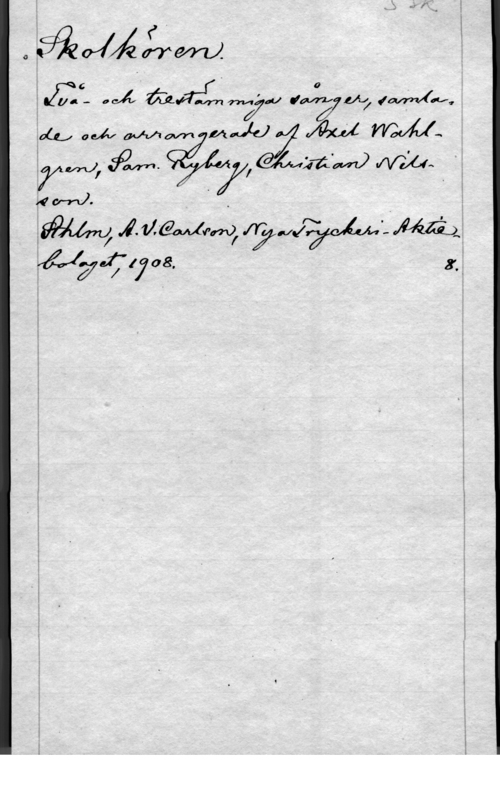 Skolkören.
Två- och trestämmiga sånger, samla-
de och arrangerade af Axel Wahl-
gren, Sam. Ryberg, Christian Nils-
son.
Sthlm, A.V. Carlson, Nya Tryckeri-Aktie-
bolaget, 1908. 8.